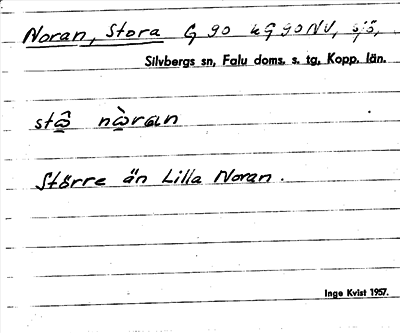 Noran, Stora G 90 kG 90 NV, sjö,
Silvbergs sn, Falu doms. s. tg, Kopp. län.
stω̂ nὼran
Större än Lilla Noran.
Inge Kvist 1957.